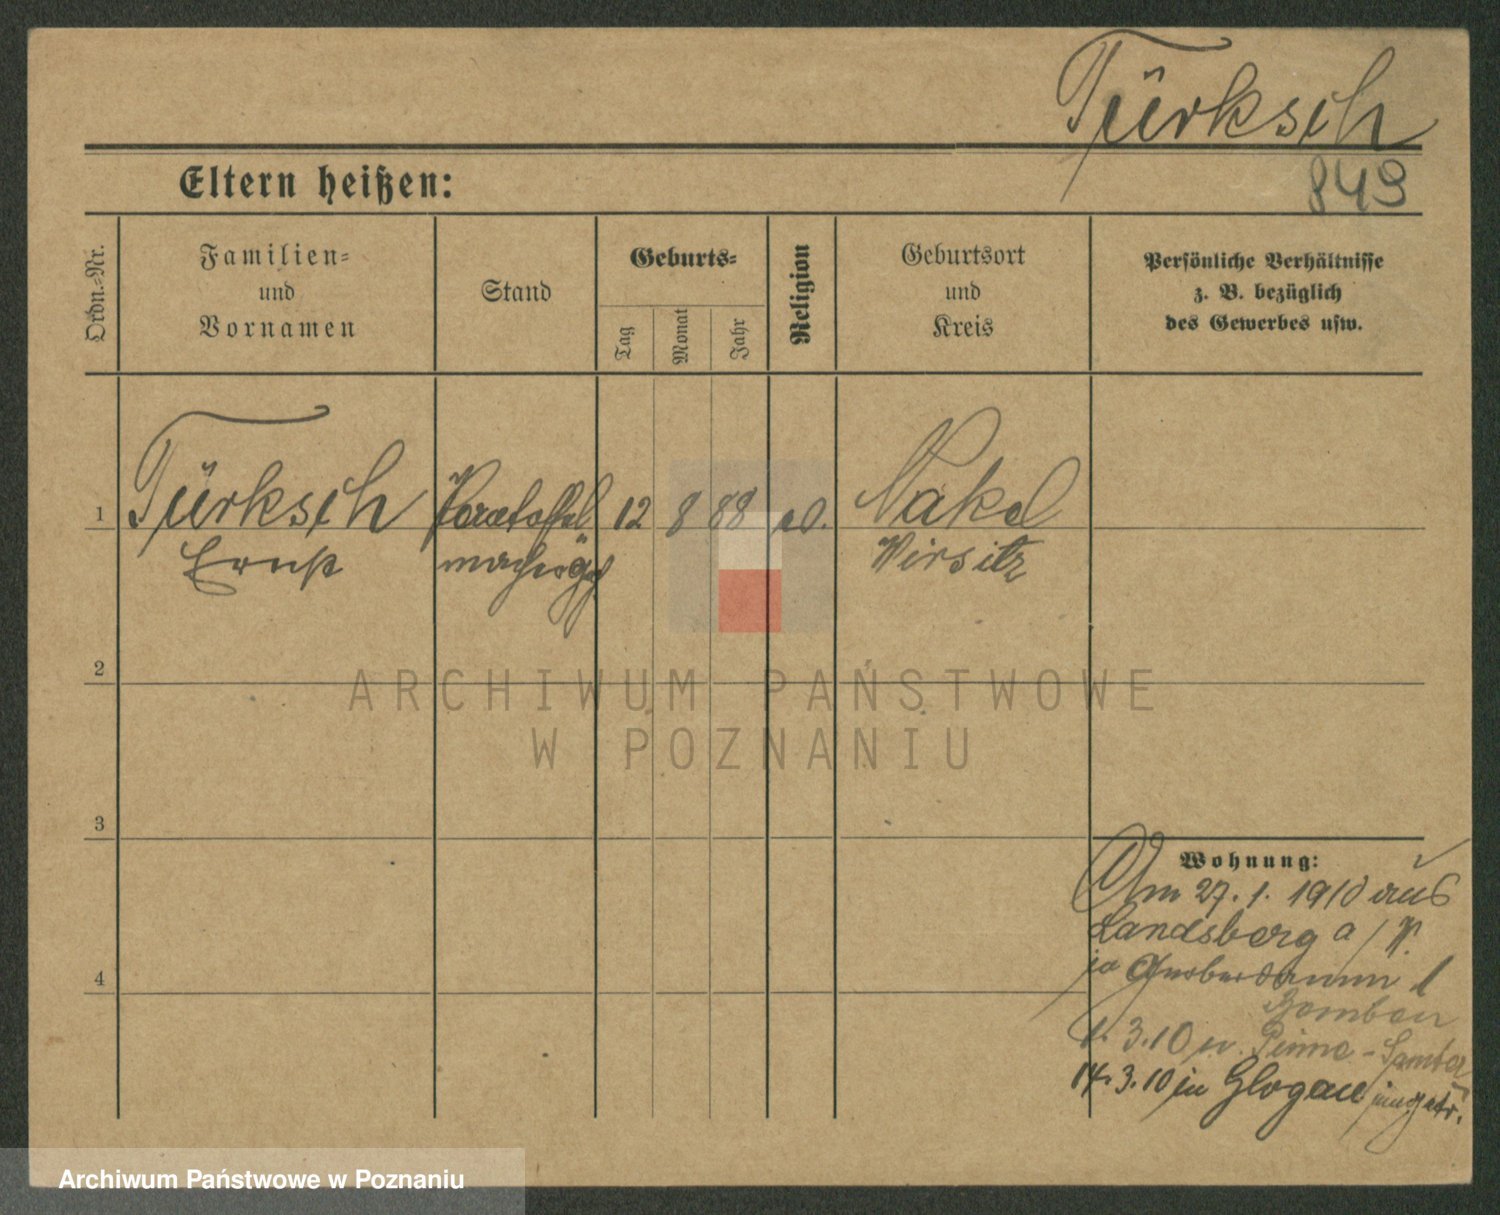 Türksch
849
Eltern heißen:
Ordn.-Nr.
Familien-
und
Vornamen
Stand
Geburts-
Tag
Monat
Jahr
Religion
Geburtsort
und
Kreis
Persönliche Verhältnisse
z. B. bezüglich
des Gewerbes usw.
1
Türksch
12
8
88
Nakel
Ernst
Wirsitz
2
ARCHIWUM PAŃSTWOWE
W POZNANIU
3
Wohnung:
Am 27. 1. 1910 aus
Landsberg a/W.
4
1. 3. 10 n. Pinne - Samter
14. 3. 10 in Glogau
Archiwum Państwowe w Poznaniu